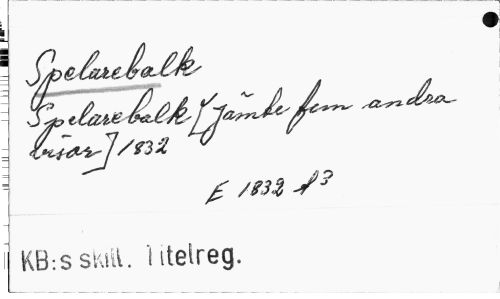 Spelarebalk
Spelarebalk [jämte fem andra
visor] 1832
E 1832 f3
KB:s skill. Titelreg.